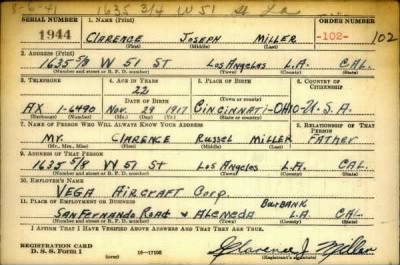 8-6-41 1635 3/4 W 51 St La
SERIAL NUMBER 1. Name (Print) ORDER NUMBER
1944 CLARENCE JOSEPH MILLER -102- 102
(First) (Middle) (Last)
2. ADDRESS (Print)
1635 5/8 W 51 ST LOS ANGELES L.A. CAL.
(Number and street or R. F. D. number) (Town) (County) (State)
3. TELEPHONE 4. AGE IN YEARS 5. PLACE OF BIRTH 6. COUNTRY OF CITIZENSHIP
22
DATE OF BIRTH (Town or county)
AX 1-6490 Nov. 28 1917 CINCINNATI-OHIO-U.S.A.
(Exchange) (Number) (Mo.) (Day) (Yr.) (State or country)
7. NAME OF PERSON WHO WILL ALWAYS KNOW YOUR ADDRESS 8. RELATIONSHIP OF THAT PERSON
Mr. CLARENCE RUSSEL MILLER FATHER
(Mr., Mrs., Miss) (First) (Middle) (Last)
9. ADDRESS OF THAT PERSON
1635 5/8 W 51 ST LOS ANGELES L.A. CAL.
(Number and street or R. F. D. number) (Town) (County) (State)
10. EMPLOYER'S NAME
VEGA AIRCRAFT CORP.
11. PLACE OF EMPLOYMENT OR BUSINESS BURBANK
SAN FERNANDO ROAD & ALAMEDA L.A. CAL
(Number and street or R. F. D. number) (Town) (County) (State)
I AFFIRM THAT I HAVE VERIFIED ABOVE ANSWERS AND THAT THEY ARE TRUE.
REGISTRATION CARD
D. S. S. Form 1 (over) 16-17105 Clarence J. Miller